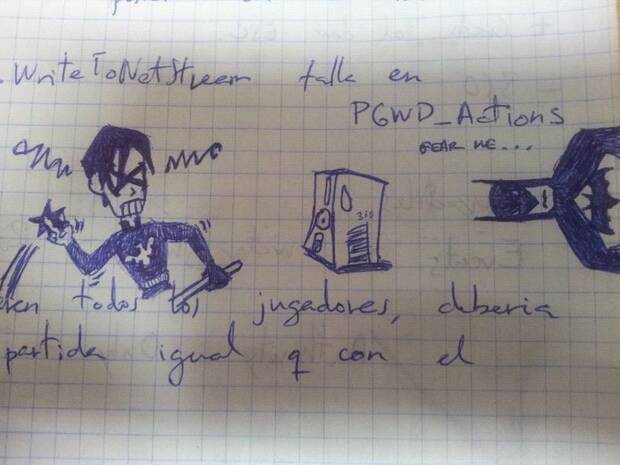 .WriteToNetStream falla en
PGWD_Actions
FEAR ME...
360
eren todos los jugadores, deberia
partida igual q con el